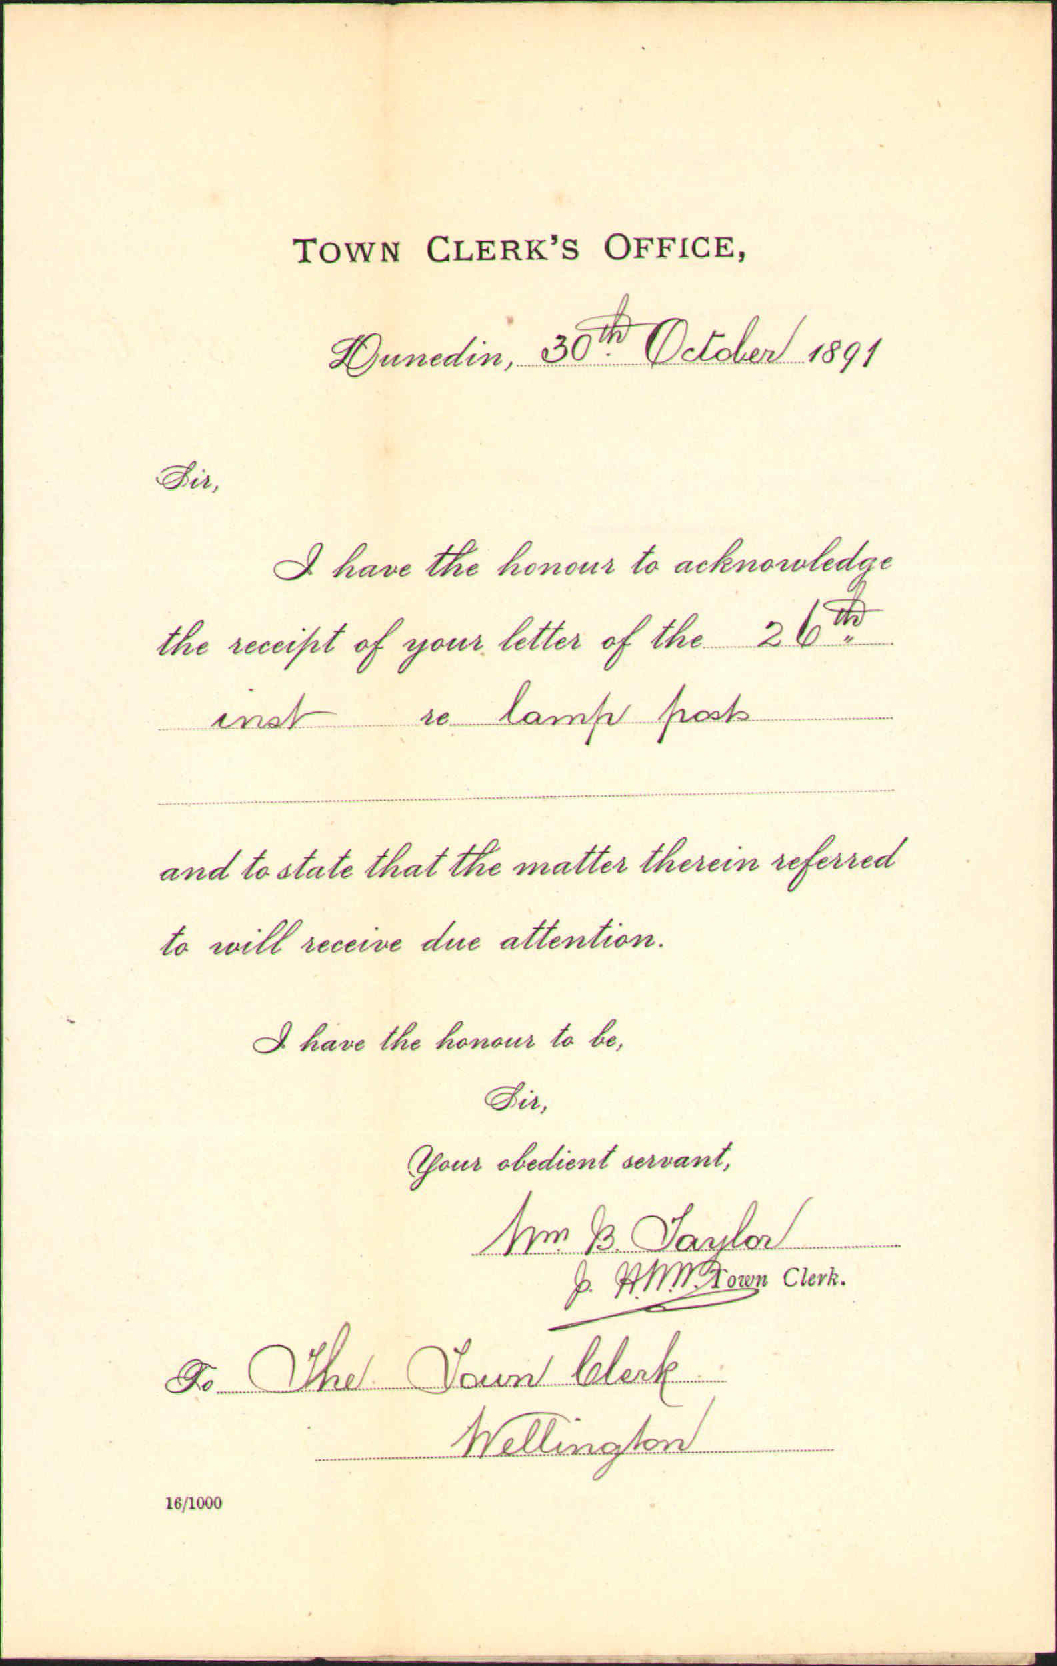 TOWN CLERK'S OFFICE,
Dunedin, 30th October 1891
Sir,
I have the honour to acknowledge
the receipt of your letter of the 26th
inst re lamp posts
and to state that the matter therein referred
to will receive due attention.
I have the honour to be,
Sir,
Your obedient servant,
Wm. B. Taylor
Town Clerk.
To The Town Clerk
Wellington
16/1000